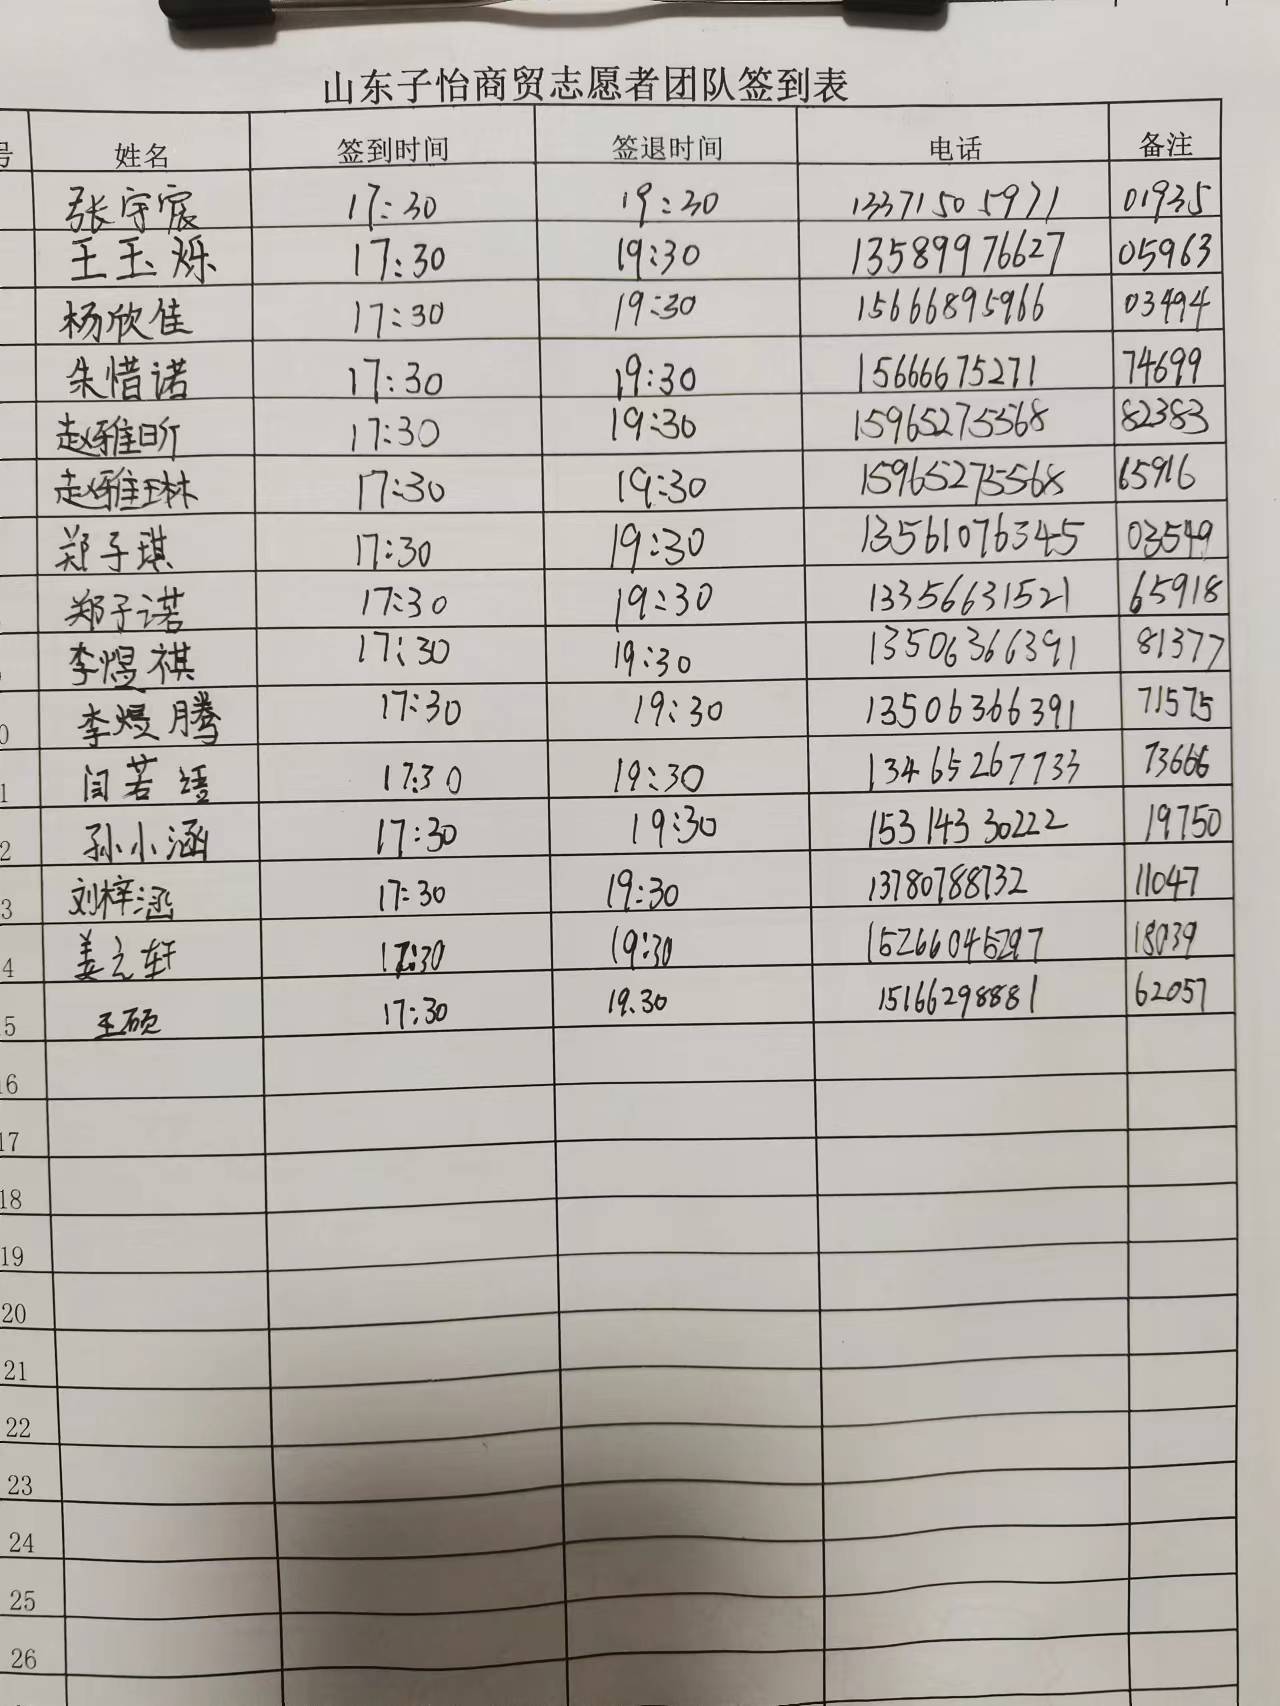 山东子怡商贸志愿者团队签到表
号 姓名 签到时间 签退时间 电话 备注
张宇宸 17:30 19:30 13371505971 01935
王玉烁 17:30 19:30 13589976627 05963
杨欣佳 17:30 19:30 15666895966 03494
朱惜诺 17:30 19:30 15666675271 74699
赵雅昕 17:30 19:30 15965275568 82383
赵雅琳 17:30 19:30 15965275568 65916
郑子琪 17:30 19:30 13561076345 03549
郑子诺 17:30 19:30 13356631521 65918
李煜祺 17:30 19:30 13506366391 81377
0 李煜腾 17:30 19:30 13506366391 71575
1 闫若语 17:30 19:30 13465267733 73666
2 孙小涵 17:30 19:30 15314330222 19750
3 刘梓涵 17:30 19:30 13780788732 11047
4 姜元轩 17:30 19:30 15266045297 18039
5 王硕 17:30 19.30 15166298881 62057
16
17
18
19
20
21
22
23
24
25
26